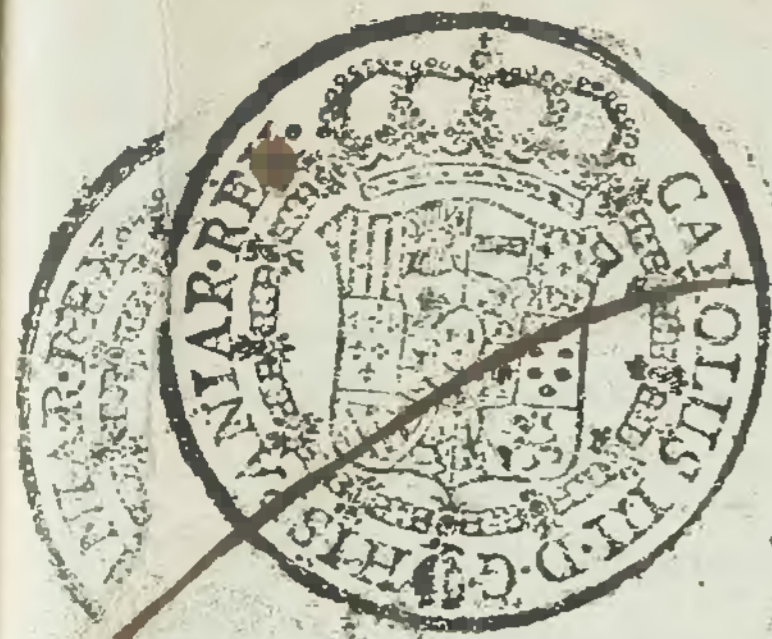 CAROLUS III·D·G·HISPANIAR·REX
NIAR·REX